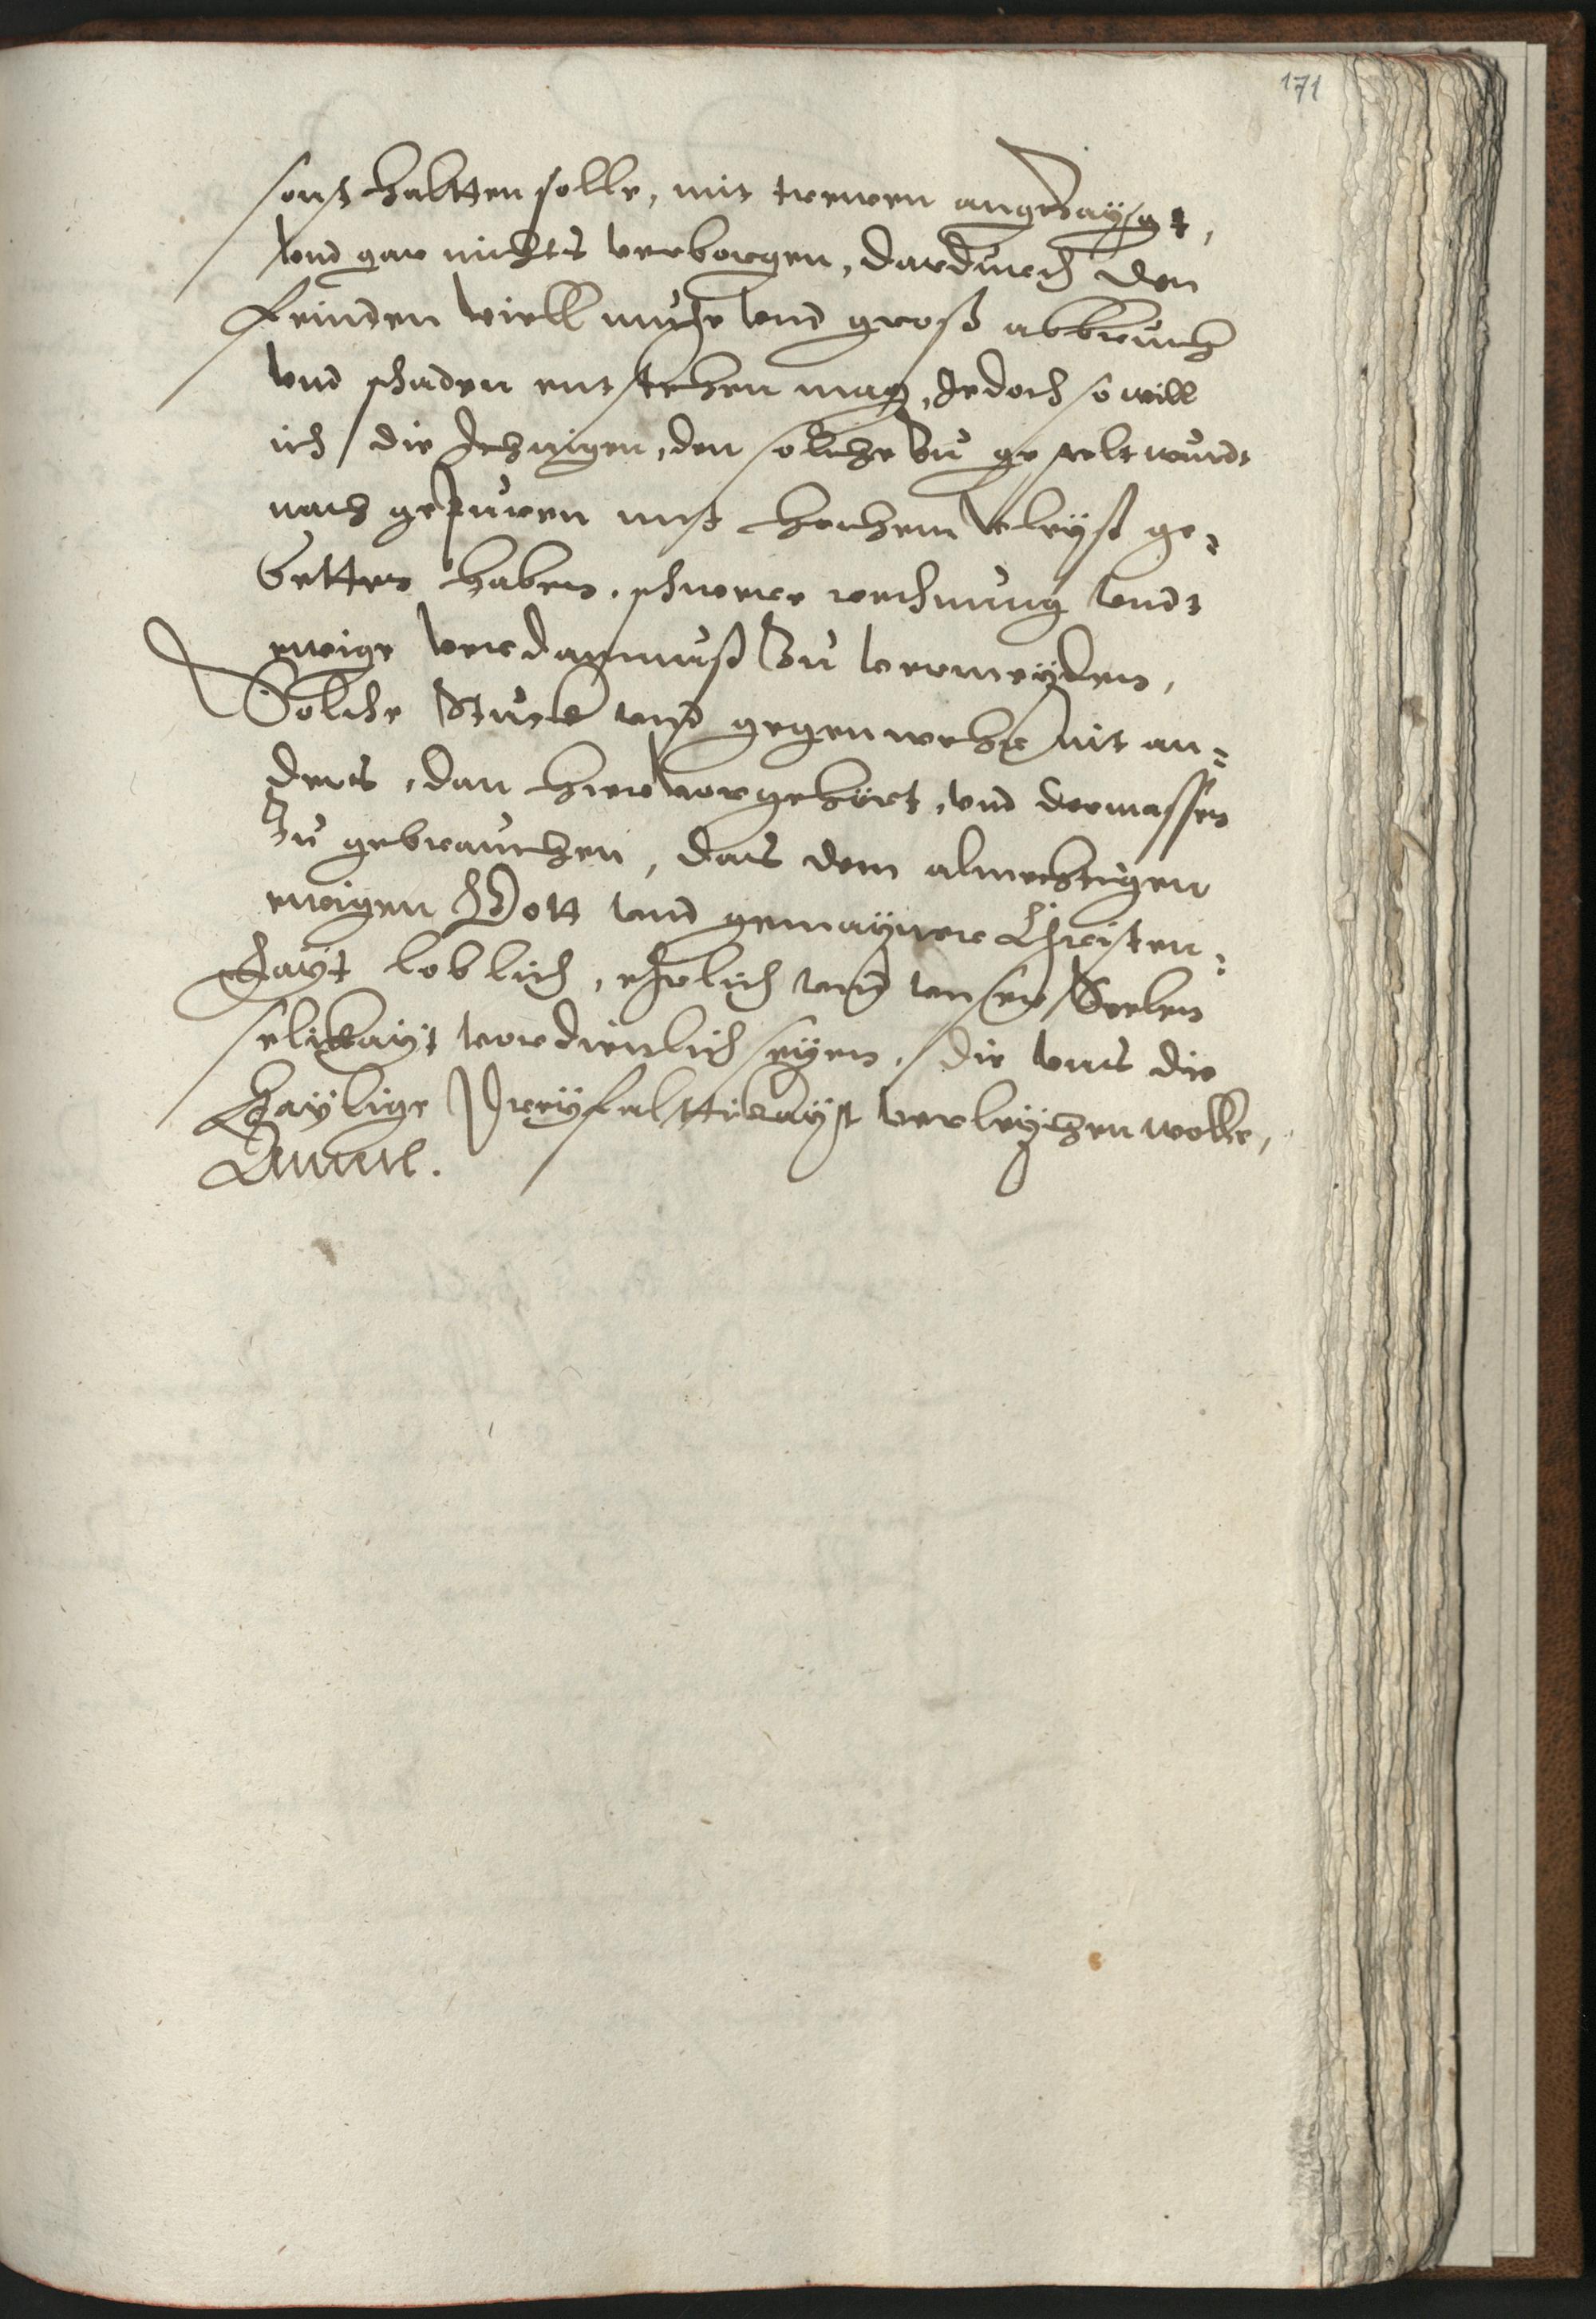 171
sonst haltten solle, mit trewen angezaygt,
vnd gar nichts verborgen, dardurch den
feinden viell muhe vnd groß abbruch
vnd schaden entstehen mag, Jedoch so will
ich die Jehnigen, den solche zu gestelt wurdt
nach gepuren mit hochem vleyß ge=
betten haben, schwere rechnung vndt
ewige verdamnuß zu vermeyden,
Solche Stuck vnd gegenwehr nit an=
derst, dan hievor gehört, vnd dermassen
zu gebrauchen, das dem almechtigen
ewigen Gott vnd gemayner Christen=
hayt loblich, ehrlich vnd vnser Seelen
selikayt vordienlich seyen, die vns die
Haylige Dreyfalttikayt verleychen wolle,
Amen.